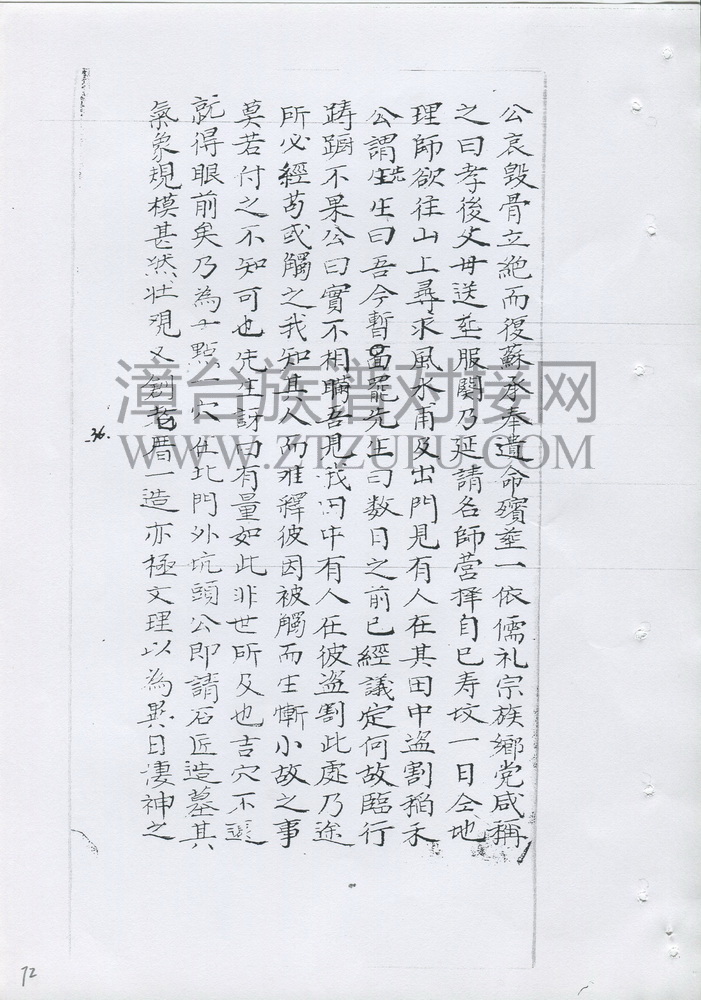 公哀毀骨立絶而復蘇承奉遺命殯塟一依儒礼宗族鄉党咸稱
之曰孝後父母送塟服闋乃延請名師营择自已寿坟一日仝地
理師欲往山上尋求風水甫及出門見有人在其田中盗割稻禾
公謂先生曰吾今暫罷先生曰数日之前已經議定何故臨行
躊躇不果公曰實不相瞞吾見我田中有人在彼盗割此處乃途
所必經苟或觸之我知其人而难釋彼因被觸而生慚小故之事
莫若付之不知可也先生訝曰有量如此非世所及也吉穴不遠
就得眼前矣乃為点一穴在北門外坑頭公即請石匠造墓其
氣象規模甚然壮观又創老厝一造亦極文理以為異日凄神之
36.
72
漳台族谱对接网
WWW.ZTZUPU.COM